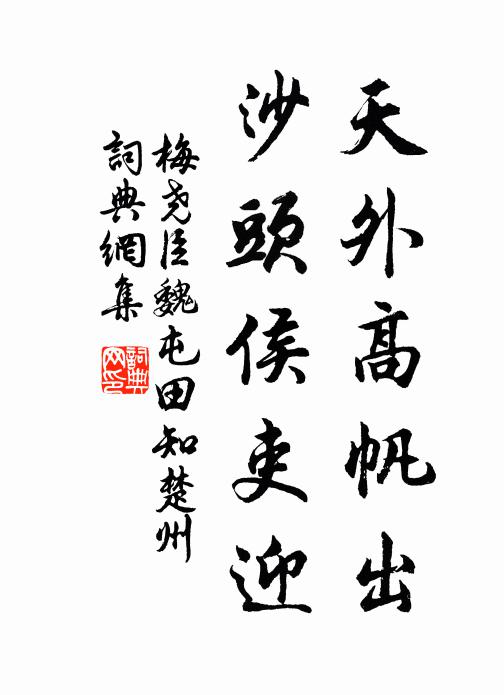 天外高帆出
沙頭侯吏迎
梅尧臣魏屯田知楚州
詞典網集
詞典
网印